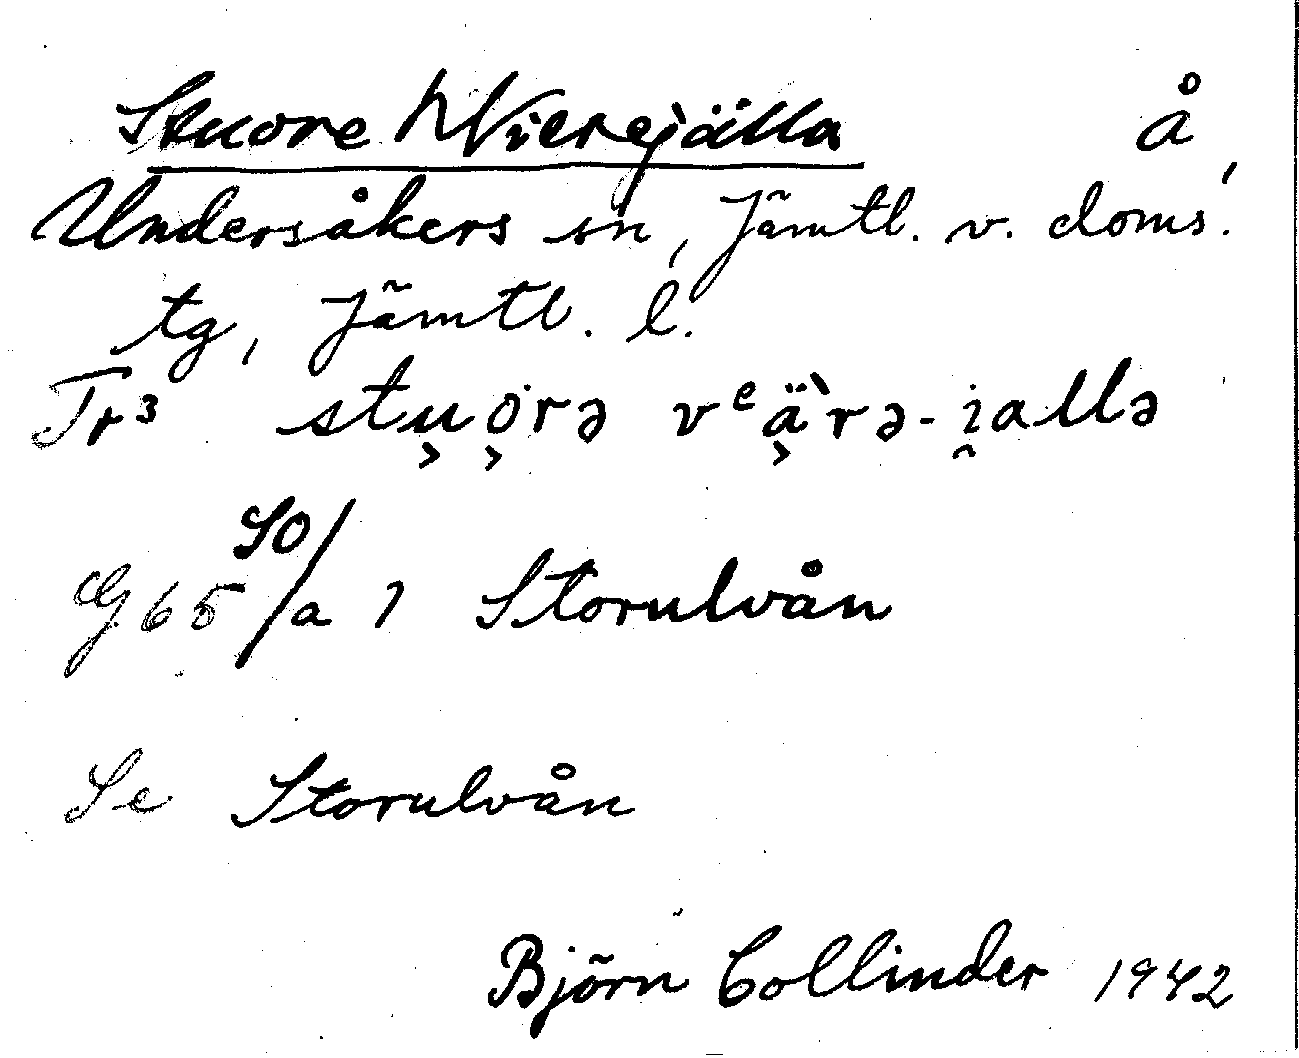 Stuore Vierejälla å
Undersåkers sn, Jämtl. v. doms.
tg, Jämtl. l.
Tr³ stu̬o̬rə vᵉä̬̀rə-i̯allə
G 65 SO/a 1 Storulvån
Se Storulvån
Björn Collinder 1942